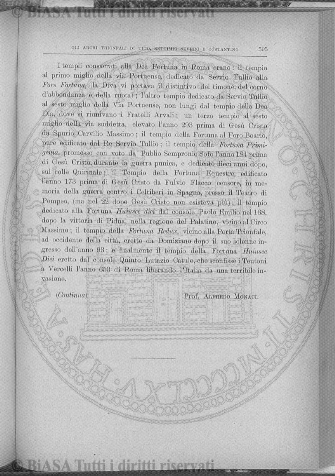 © BIASA Tutti i diritti riservati
GLI ARCHI TRIONFALI DI SETTIMIO SEVERO E COSTANTINO 505
I tempi consacrati alla Dea Fortuna in Roma erano: il tempio
al primo miglio della via Portuense, dedicato da Servio Tullio alla
Fors Fortuna, la Diva vi portava il distintivo del timone, del corno
d'abbondanza e della ruota; l'altro tempio dedicato da Servio Tullio
al sesto miglio della Via Portuense, non lungi dal tempio della Dea
Dia, dove si riunivano i Fratelli Arvali; un terzo tempio al sesto
miglio della via suddetta, elevato l'anno 293 prima di Gesù Cristo
da Spurio Carvilio Massimo; il tempio della Fortuna al Foro Boario,
pure edificato dal Re Servio Tullio; il tempio della Fortuna Primi-
genia, promesso con voto da Publio Sempronio Sofo l'anno 194 prima
di Gesù Cristo, durante la guerra punica, e dedicato dieci anni dopo,
sul colle Quirinale; il Tempio della Fortuna Equestre, edificato
l'anno 173 prima di Gesù Cristo da Fulvio Flacco censore, in me-
moria della guerra contro i Celtiberi in Spagna, presso il Teatro di
Pompeo, (ma nel 22 dopo Gesù Cristo non esisteva più); il tempio
dedicato alla Fortuna Huiusce diei dal console Paolo Emilio nel 168,
dopo la vittoria di Pidna, nella regione del Palatino, vicino al Circo
Massimo; il tempio della Fortuna Redux, vicino alla Porta Trionfale,
ad occidente della città, eretto da Domiziano dopo il suo solenne in-
gresso dell'anno 93; e finalmente il tempio della Fortuna Huiusce
Diei eretto dal console Quinto Lutazio Catulo, che sconfisse i Teutoni
a Vercelli l'anno 653 di Roma liberando l'Italia da una terribile in-
vasione.
(Continua) Prof. Alfredo Monaci.
© BIASA Tutti i diritti riservati